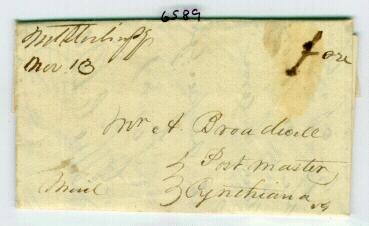 6589
Mt Sterling Ky
Nov 13
Free
Mr A. Broadwell
Post Master
Cynthiana Ky
Mail